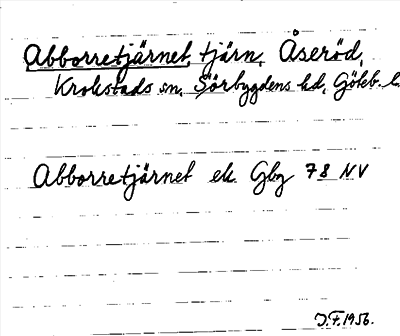 Abborretjärnet, tjärn, Åseröd,
Krokstads sn, Sörbygdens hd, Göteb. l.
Abborretjärnet ek. Gbg 78 NV
J.F. 1956.